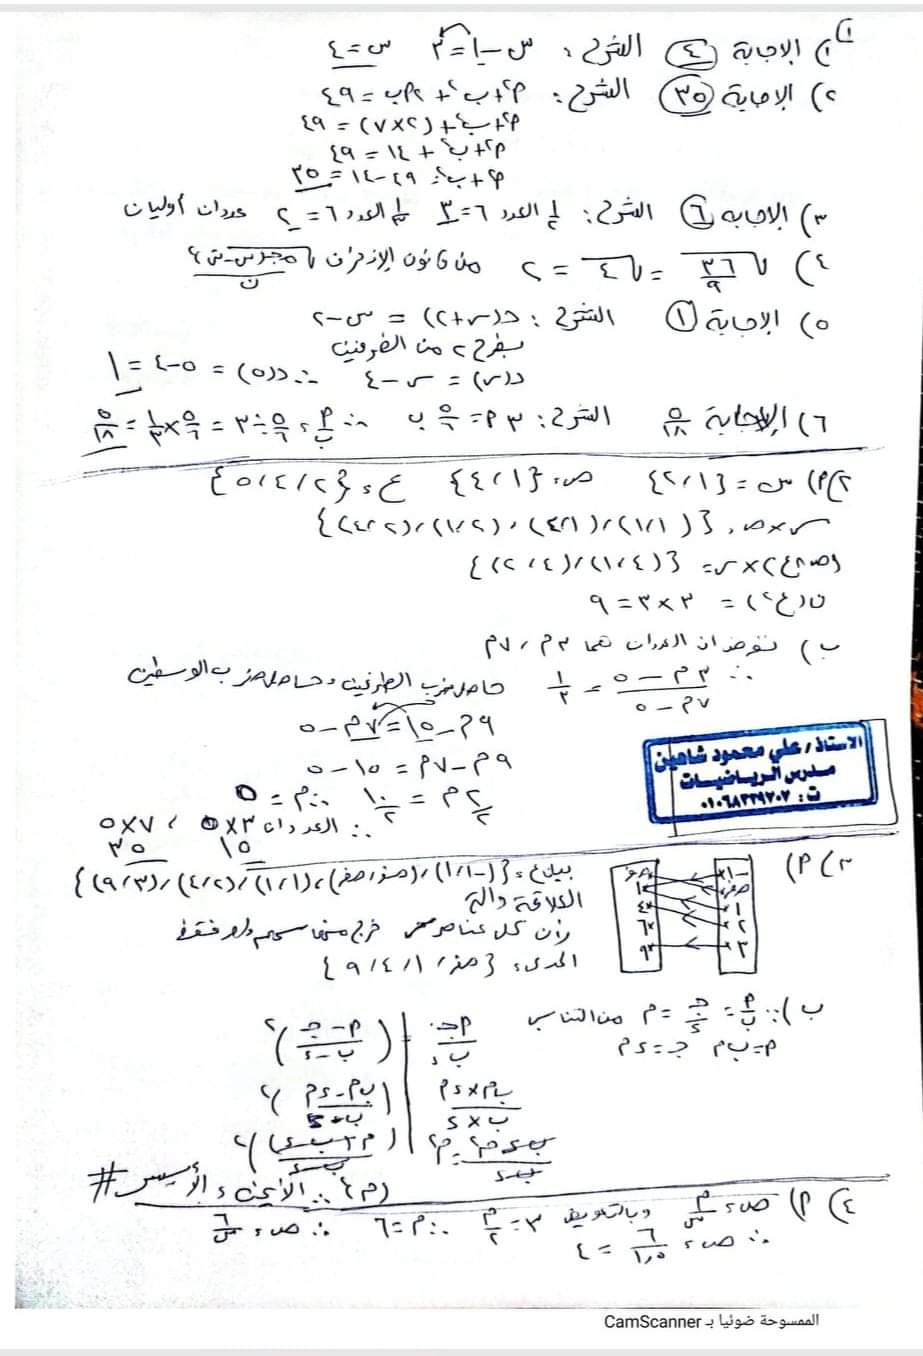 ١) ١) الإجابة ٤ الشرح: س - ١ = ٣ س = ٤
٢) الإجابة ٣٥ الشرح: م٢ + ب٢ + ٢مب = ٤٩
م٢ + ب٢ + (٢×٧) = ٤٩
م٢ + ب٢ + ١٤ = ٤٩
م٢ + ب٢ = ٤٩ - ١٤ = ٣٥
٣) الإجابة ٦ الشرح: ١/٢ العدد ٦ = ٣ ١/٣ العدد ٦ = ٢ عددان أوليان
٤) √٣٦/٩ = √٤ = ٢ من قانون الإنحراف
٥) الإجابة ١ الشرح: د(س+٢) = س - ٢
بطرح ٢ من الطرفين
د(س) = س - ٤ ∴ د(٥) = ٥ - ٤ = ١
٦) الإجابة ٥/١٨ الشرح: ٣م = ٥/٦ ب ∴ م/ب = ٥/٦ ÷ ٣ = ٥/٦ × ١/٣ = ٥/١٨
٢) م) س = {١، ٢} ص = {١، ٤} ع = {٢، ٤، ٥}
س×ص = {(١،١)، (١،٤)، (٢،١)، (٢،٤)}
(ص∩ع)×س = {(٤،١)، (٤،٢)}
ن(ع٢) = ٣×٣ = ٩
ب) نفرض ان العددان هما ٣م، ٧م
∴ ٣م - ٥ / ٧م - ٥ = ١/٣ حاصل ضرب الطرفين = حاصل ضرب الوسطين
٩م - ١٥ = ٧م - ٥
٩م - ٧م = ١٥ - ٥
٢م/٢ = ١٠/٢ ∴ م = ٥
∴ العددان ٣×٥، ٧×٥
١٥ ٣٥
الاستاذ / علي محمود شاهين
مدرس الرياضيات
ت: ٠١٠٦٨٣٣٩٧٠٢
٣) م)
-١ صفر ١ ٢ ٣
صفر ١ ٤ ٦ ٩
بيان ع = {(-١،١)، (صفر،صفر)، (١،١)، (٢،٤)، (٣،٩)}
العلاقة دالة
لأن كل عناصر س خرج منها سهم واحد فقط
المدى = {صفر، ١، ٤، ٩}
ب) ∵ م/ب = جـ/د = م من التناسب
م = بم جـ = دم
مجـ/بد | (م - جـ / ب - د)٢
بم×دم / ب×د | (بم - دم / ب - د)٢
∴ الأيمن = الأيسر #
٤) م) ص = م/س وبالتعويض ٣ = م/٢ ∴ م = ٦ ∴ ص = ٦/س
∴ ص = ٦/١,٥ = ٤
الممسوحة ضوئيا بـ CamScanner